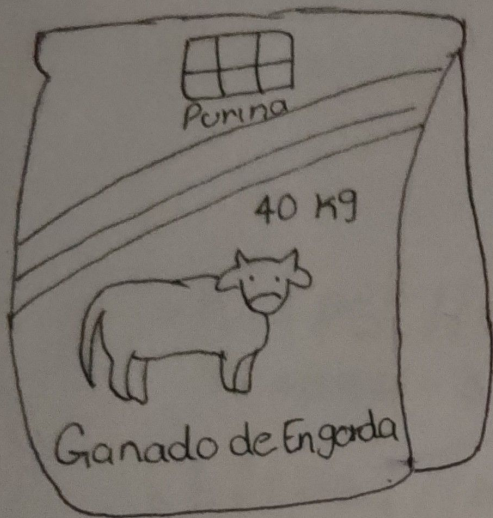 Purina
40 kg
Ganado de Engorda